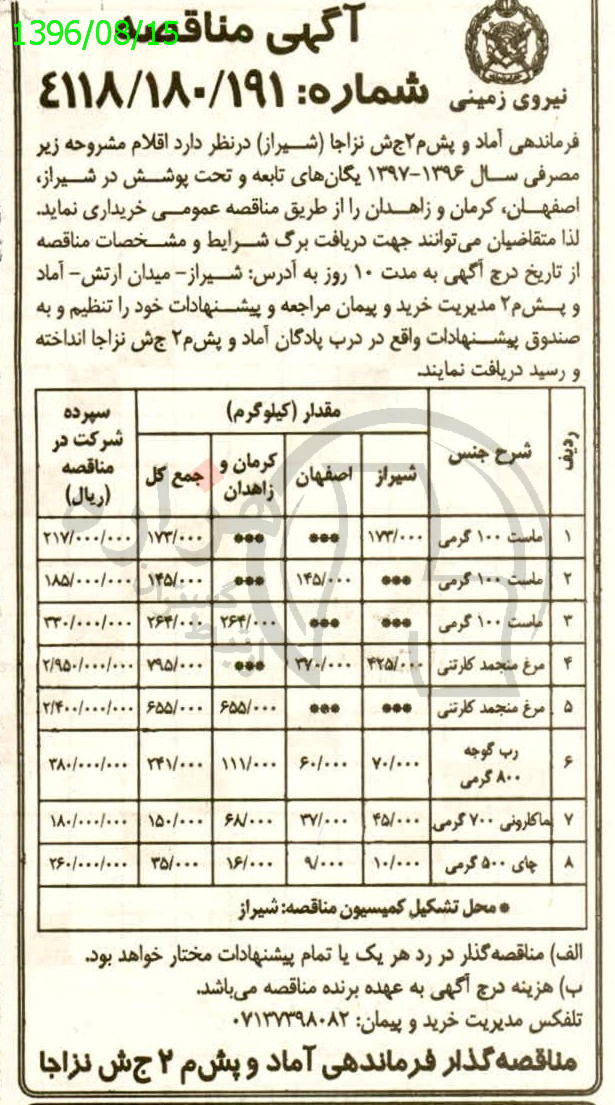 1396/08/15
آگهی مناقصه
نیروی زمینی
شماره: ٤١١٨/١٨٠/١٩١
فرماندهی آماد و پش‌م۲ج‌ش نزاجا (شیراز) درنظر دارد اقلام مشروحه زیر
مصرفی سال ۱۳۹۶-۱۳۹۷ یگان‌های تابعه و تحت پوشش در شیراز،
اصفهان، کرمان و زاهدان را از طریق مناقصه عمومی خریداری نماید.
لذا متقاضیان می‌توانند جهت دریافت برگ شرایط و مشخصات مناقصه
از تاریخ درج آگهی به مدت ۱۰ روز به آدرس: شیراز- میدان ارتش- آماد
و پش‌م۲ مدیریت خرید و پیمان مراجعه و پیشنهادات خود را تنظیم و به
صندوق پیشنهادات واقع در درب پادگان آماد و پش‌م۲ ج‌ش نزاجا انداخته
و رسید دریافت نمایند.
ردیف شرح جنس مقدار (کیلوگرم) سپرده شرکت در مناقصه (ریال)
شیراز اصفهان کرمان و زاهدان جمع کل
۱ ماست ۱۰۰ گرمی ۱۷۳/۰۰۰ *** *** ۱۷۳/۰۰۰ ۲۱۷/۰۰۰/۰۰۰
۲ ماست ۱۰۰ گرمی *** ۱۴۵/۰۰۰ *** ۱۴۵/۰۰۰ ۱۸۵/۰۰۰/۰۰۰
۳ ماست ۱۰۰ گرمی *** *** ۲۶۴/۰۰۰ ۲۶۴/۰۰۰ ۳۳۰/۰۰۰/۰۰۰
۴ مرغ منجمد کارتنی ۴۲۵/۰۰۰ ۳۷۰/۰۰۰ *** ۷۹۵/۰۰۰ ۲/۹۵۰/۰۰۰/۰۰۰
۵ مرغ منجمد کارتنی *** *** ۶۵۵/۰۰۰ ۶۵۵/۰۰۰ ۲/۴۰۰/۰۰۰/۰۰۰
۶ رب گوجه ۸۰۰ گرمی ۷۰/۰۰۰ ۶۰/۰۰۰ ۱۱۱/۰۰۰ ۲۴۱/۰۰۰ ۳۸۰/۰۰۰/۰۰۰
۷ ماکارونی ۷۰۰ گرمی ۴۵/۰۰۰ ۳۷/۰۰۰ ۶۸/۰۰۰ ۱۵۰/۰۰۰ ۱۸۰/۰۰۰/۰۰۰
۸ چای ۵۰۰ گرمی ۱۰/۰۰۰ ۹/۰۰۰ ۱۶/۰۰۰ ۳۵/۰۰۰ ۲۶۰/۰۰۰/۰۰۰
* محل تشکیل کمیسیون مناقصه: شیراز
الف) مناقصه‌گذار در رد هر یک یا تمام پیشنهادات مختار خواهد بود.
ب) هزینه درج آگهی به عهده برنده مناقصه می‌باشد.
تلفکس مدیریت خرید و پیمان: ۰۷۱۳۷۳۹۸۰۸۲
مناقصه‌گذار فرماندهی آماد و پش‌م ۲ ج‌ش نزاجا